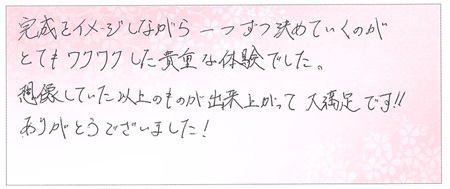 完成をイメージしながら一つずつ決めていくのが
とてもワクワクした貴重な体験でした。
想像していた以上のものが出来上がって大満足です!!
ありがとうございました!